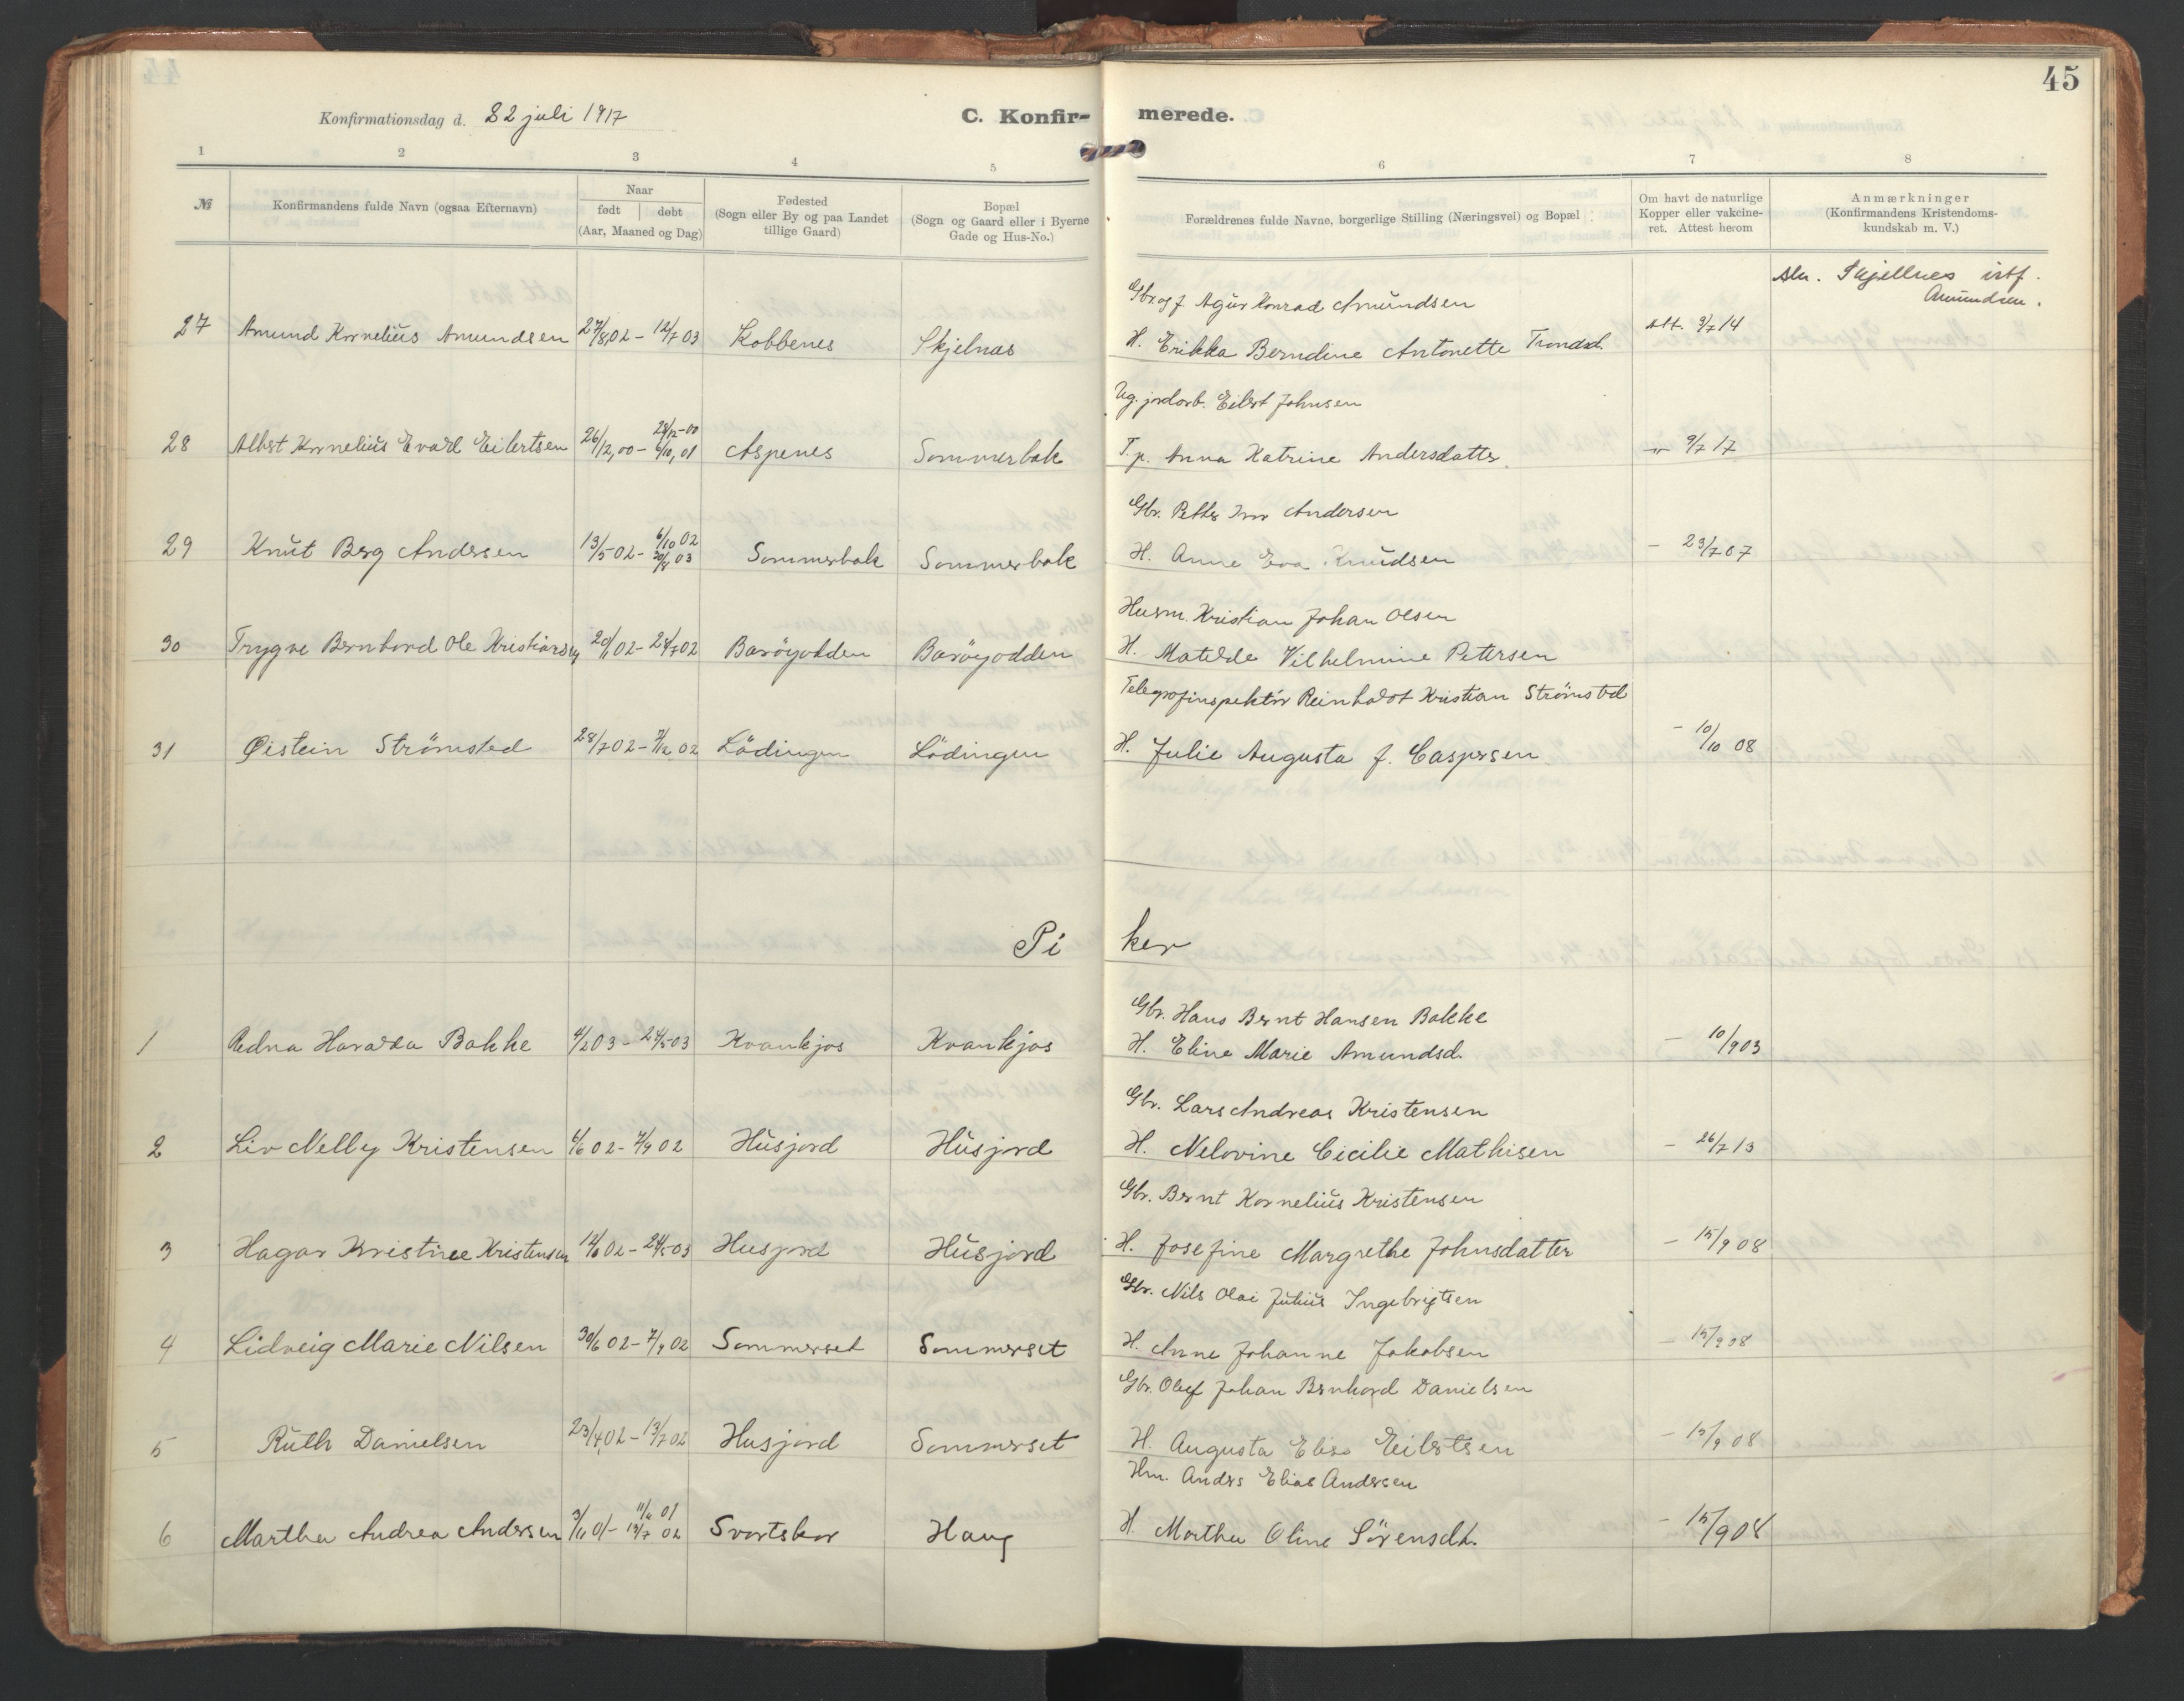 45
Konfirmationsdag d. 22 juli 1917
C. Konfir- merede.
1 2 3 4 5 6 7 8
№
Konfirmandens fulde Navn (ogsaa Efternavn)
Naar
født døbt
(Aar, Maaned og Dag)
Fødested
(Sogn eller By og paa Landet
tillige Gaard)
Bopæl
(Sogn og Gaard eller i Byerne
Gade og Hus-No.)
Forældrenes fulde Navne, borgerlige Stilling (Næringsvei) og Bopæl
Om havt de naturlige
Kopper eller vakcine-
ret. Attest herom
Anmærkninger
(Konfirmandens Kristendoms-
kundskab m. V.)
Skjellnes istf.
Amundsen.
Gbr. og f. Agur Konrad Amundsen
27 Amund Kornelius Amundsen 27/8,02 - 12/7 03 Kobbenes Skjelnas H. Erikka Berndine Antonette Trondsd. Att. 9/7 14
Ug. jordarb. Eilert Johnsen
28 Albert Kornelius Evald Eilertsen 26/12,00 - 28/12-00 6/10,01 Aspenes Sommerbak T.p. Anna Katrine Andersdatter -"- 9/7 17
Gbr. Petter Imr Andersen
29 Knut Berg Andersen 13/5-02 - 6/10 02 20/4 03 Sommerbak Sommerbak H. Anne Eva Knudsen - 23/7 07
Husm. Kristian Johan Olsen
30 Trygve Bernhard Ole Kristiansen 20/1 02 - 24/7 02 Barøyodden Barøyodden H. Matilde Vilhelmine Petersen
Telegrafinspektör Reinholdt Kristian Strömsted
31 Øistein Strömsted 28/7 02 - 7/12 02 Lödingen Lödingen H. Julie Augusta f. Caspersen - 10/10 08
Piker
Gbr. Hans Bernt Hansen Bakke
1 Edna Haralda Bakke 4/2 03 - 24/5 03 Kvankjos Kvankjos H. Eline Marie Amundsd. - 10/9 03
Gbr. Lars Andreas Kristensen
2 Liv Nelly Kristensen 4/6 02 - 7/9 02 Husjord Husjord H. Nelovine Cicilie Mathisen - 26/7 13
Gbr. Bernt Kornelius Kristensen
3 Hagar Kristine Kristensen 14/6 02 - 24/5 03 Husjord Husjord H. Josefine Margrethe Johnsdatter - 15/9 08
Gbr. Nils Olai Julius Ingebrigtsen
4 Lidveig Marie Nilsen 30/6 02 - 7/9 02 Sommerset Sommerset H. Anne Johanne Jakobsen - 15/9 08
Gbr. Oluf Johan Bernhard Danielsen
5 Ruth Danielsen 23/4,02 - 13/7 02 Husjord Sommerset H. Augusta Elise Eilertsen - 15/9 08
Hm. Anders Elias Andersen
6 Marthea Andrea Andersen 3/11 01 - 11/11 01 13/7 02 Svartskar Haug H. Marthea Oline Sörensdt. - 15/9 08